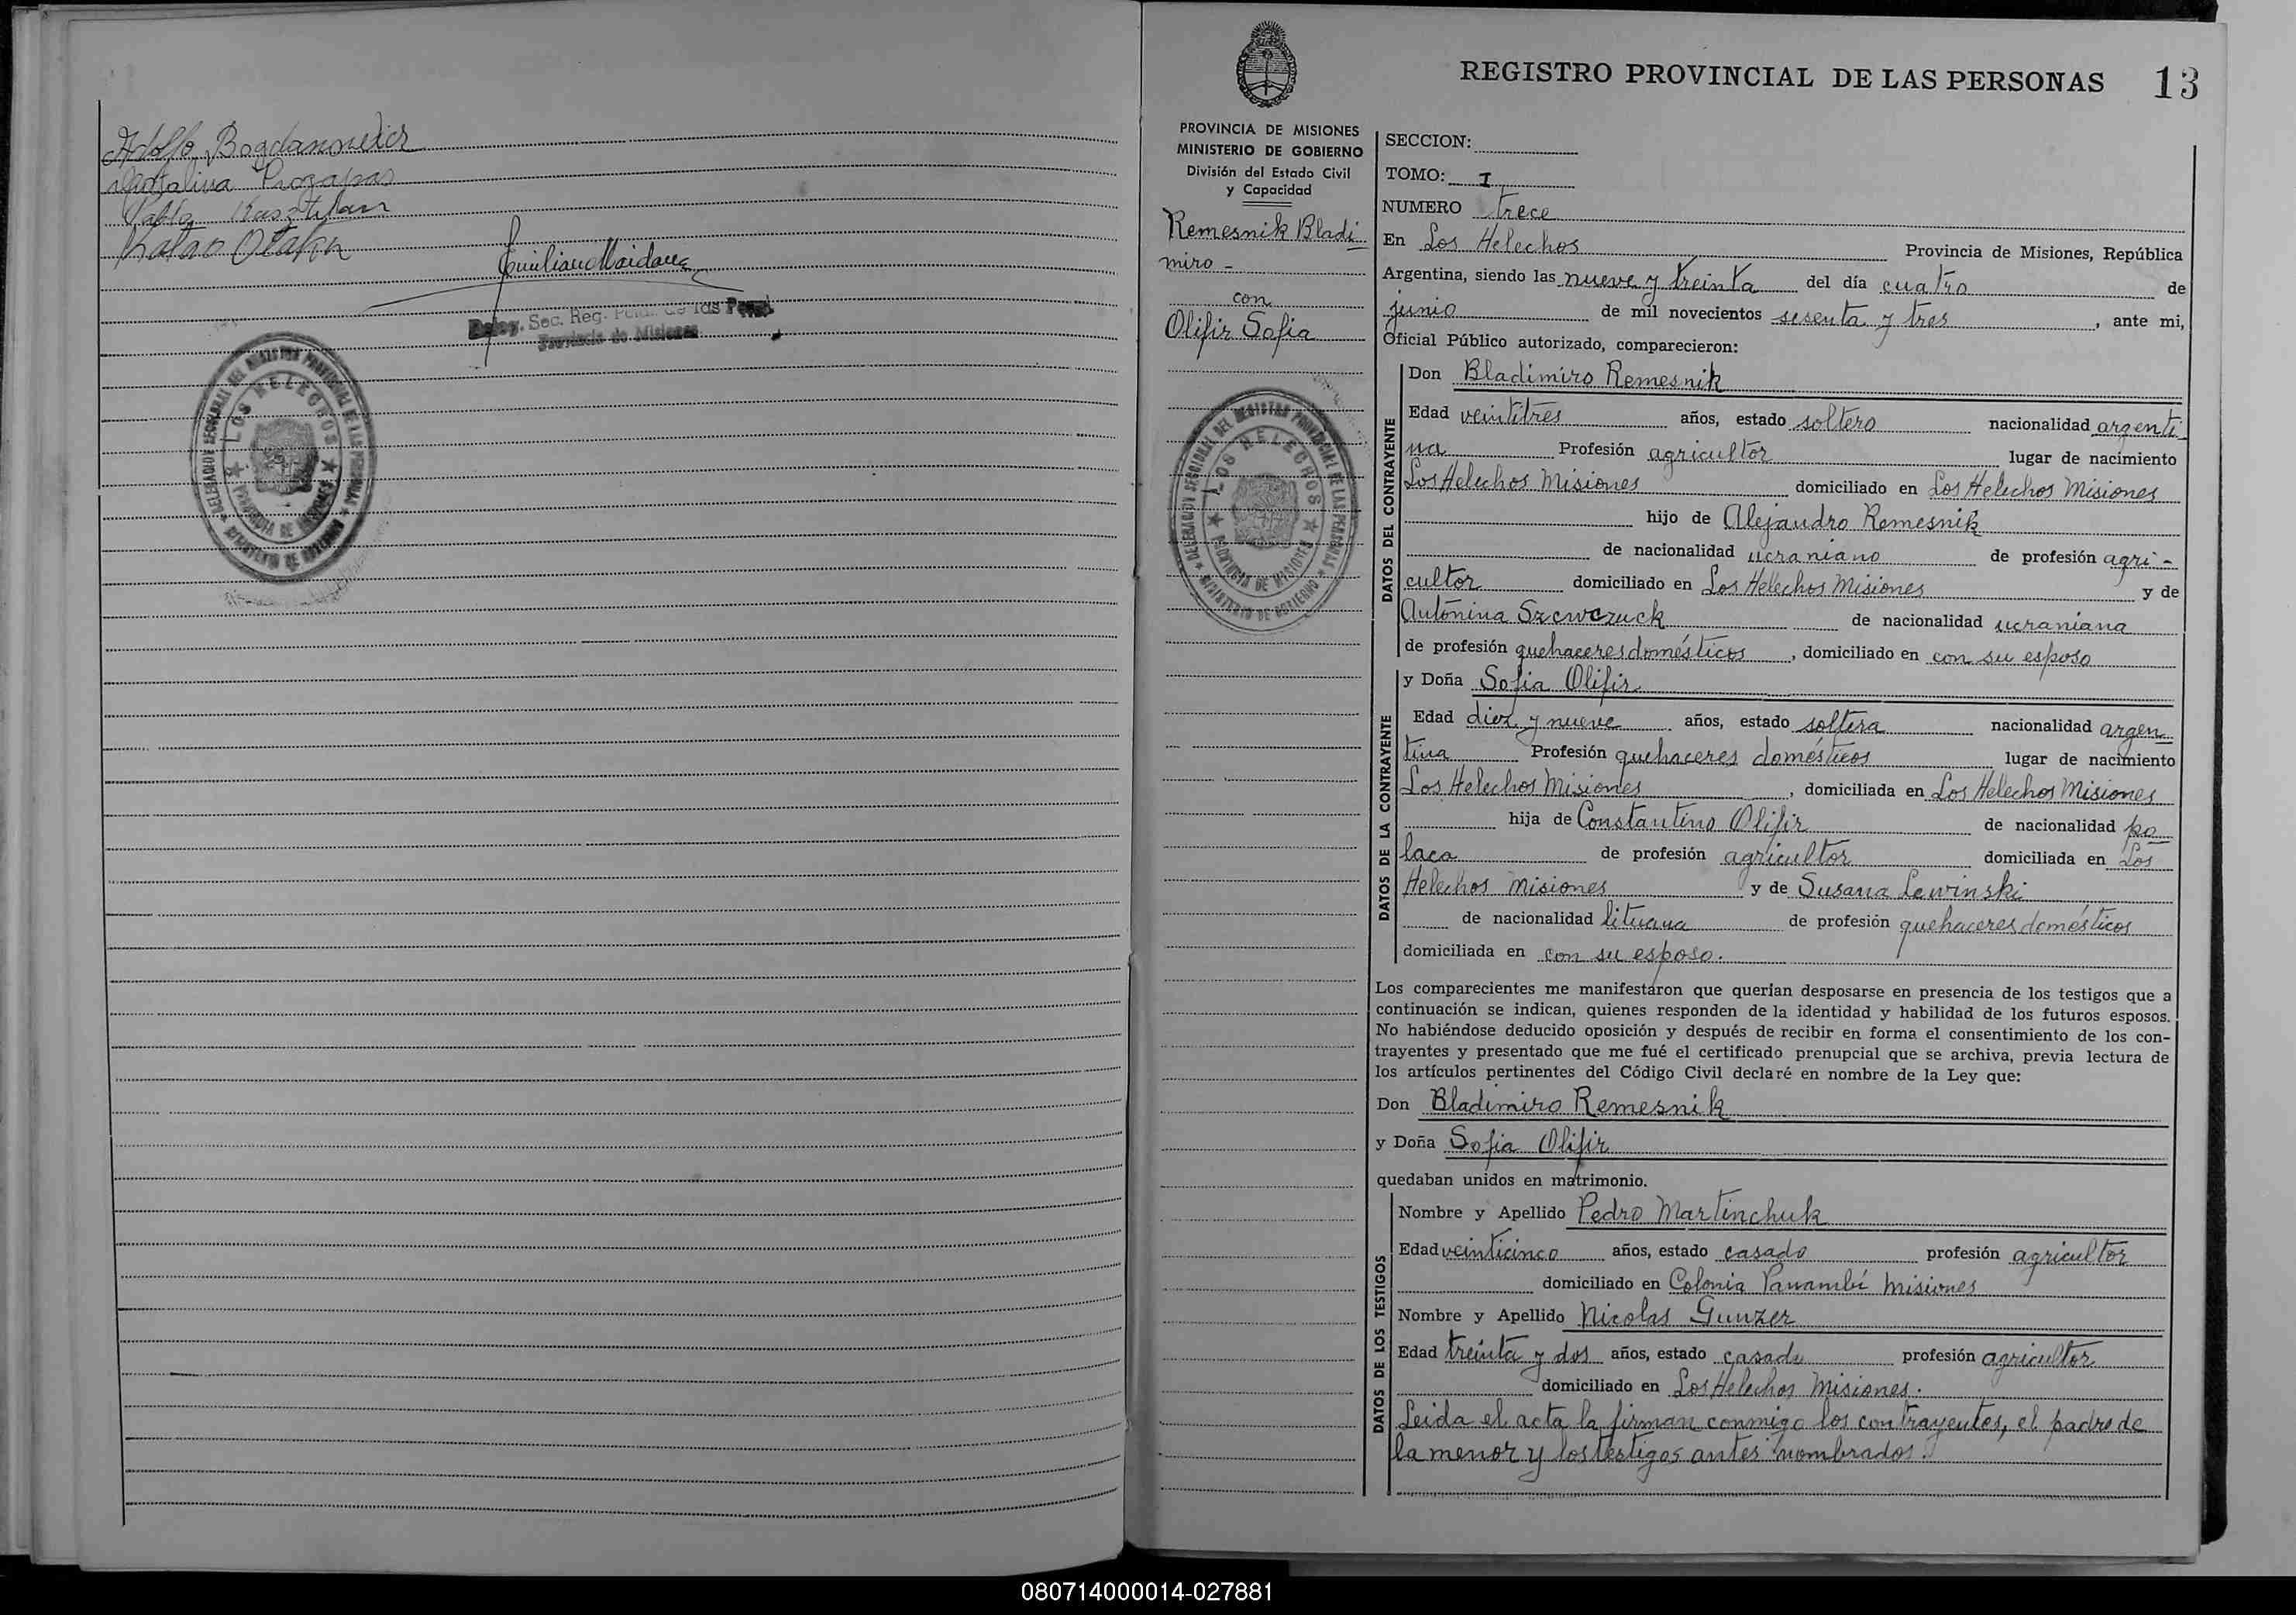 Adolfo Bogdanowicz
Pablo Kasztelan
Emiliano Maidana
Deleg. Sec. Reg. de las
Provincia de Misiones
DELEGACION SECCIONAL DEL REGISTRO PROVINCIAL DE LAS PERSONAS
LOS HELECHOS
PROVINCIA DE MISIONES
MINISTERIO DE GOBIERNO
REGISTRO PROVINCIAL DE LAS PERSONAS 13
PROVINCIA DE MISIONES
MINISTERIO DE GOBIERNO
División del Estado Civil
y Capacidad
Remesnik Bladi
miro -
con
Olifir Sofia
DELEGACION SECCIONAL DEL REGISTRO PROVINCIAL DE LAS PERSONAS
LOS HELECHOS
PROVINCIA DE MISIONES
MINISTERIO DE GOBIERNO
SECCION:
TOMO: I
NUMERO trece
En Los Helechos Provincia de Misiones, República
Argentina, siendo las nueve y treinta del día cuatro de
junio de mil novecientos sesenta y tres, ante mi,
Oficial Público autorizado, comparecieron:
DATOS DEL CONTRAYENTE
Don Bladimiro Remesnik
Edad veintitres años, estado soltero nacionalidad argenti
na Profesión agricultor lugar de nacimiento
Los Helechos Misiones domiciliado en Los Helechos Misiones
hijo de Alejandro Remesnik
de nacionalidad ucraniano de profesión agri-
cultor domiciliado en Los Helechos Misiones y de
Antonina Szewczuck de nacionalidad ucraniana
de profesión quehaceres domésticos, domiciliado en con su esposo
DATOS DE LA CONTRAYENTE
y Doña Sofia Olifir
Edad diez y nueve años, estado soltera nacionalidad argen
tina Profesión quehaceres domésticos lugar de nacimiento
Los Helechos Misiones, domiciliada en Los Helechos Misiones
hija de Constantino Olifir de nacionalidad po
laca de profesión agricultor domiciliada en Los
Helechos Misiones y de Susana Lewinski
de nacionalidad lituana de profesión quehaceres domésticos
domiciliada en con su esposo.
Los comparecientes me manifestaron que querían desposarse en presencia de los testigos que a
continuación se indican, quienes responden de la identidad y habilidad de los futuros esposos.
No habiéndose deducido oposición y después de recibir en forma el consentimiento de los con-
trayentes y presentado que me fué el certificado prenupcial que se archiva, previa lectura de
los artículos pertinentes del Código Civil declaré en nombre de la Ley que:
Don Bladimiro Remesnik
y Doña Sofia Olifir
quedaban unidos en matrimonio.
DATOS DE LOS TESTIGOS
Nombre y Apellido Pedro Martinchuk
Edad veinticinco años, estado casado profesión agricultor
domiciliado en Colonia Panambí Misiones
Nombre y Apellido Nicolas Gunzer
Edad treinta y dos años, estado casado profesión agricultor
domiciliado en Los Helechos Misiones.
Leida el acta la firman conmigo los contrayentes, el padre de
la menor y los testigos antes nombrados.
080714000014-027881